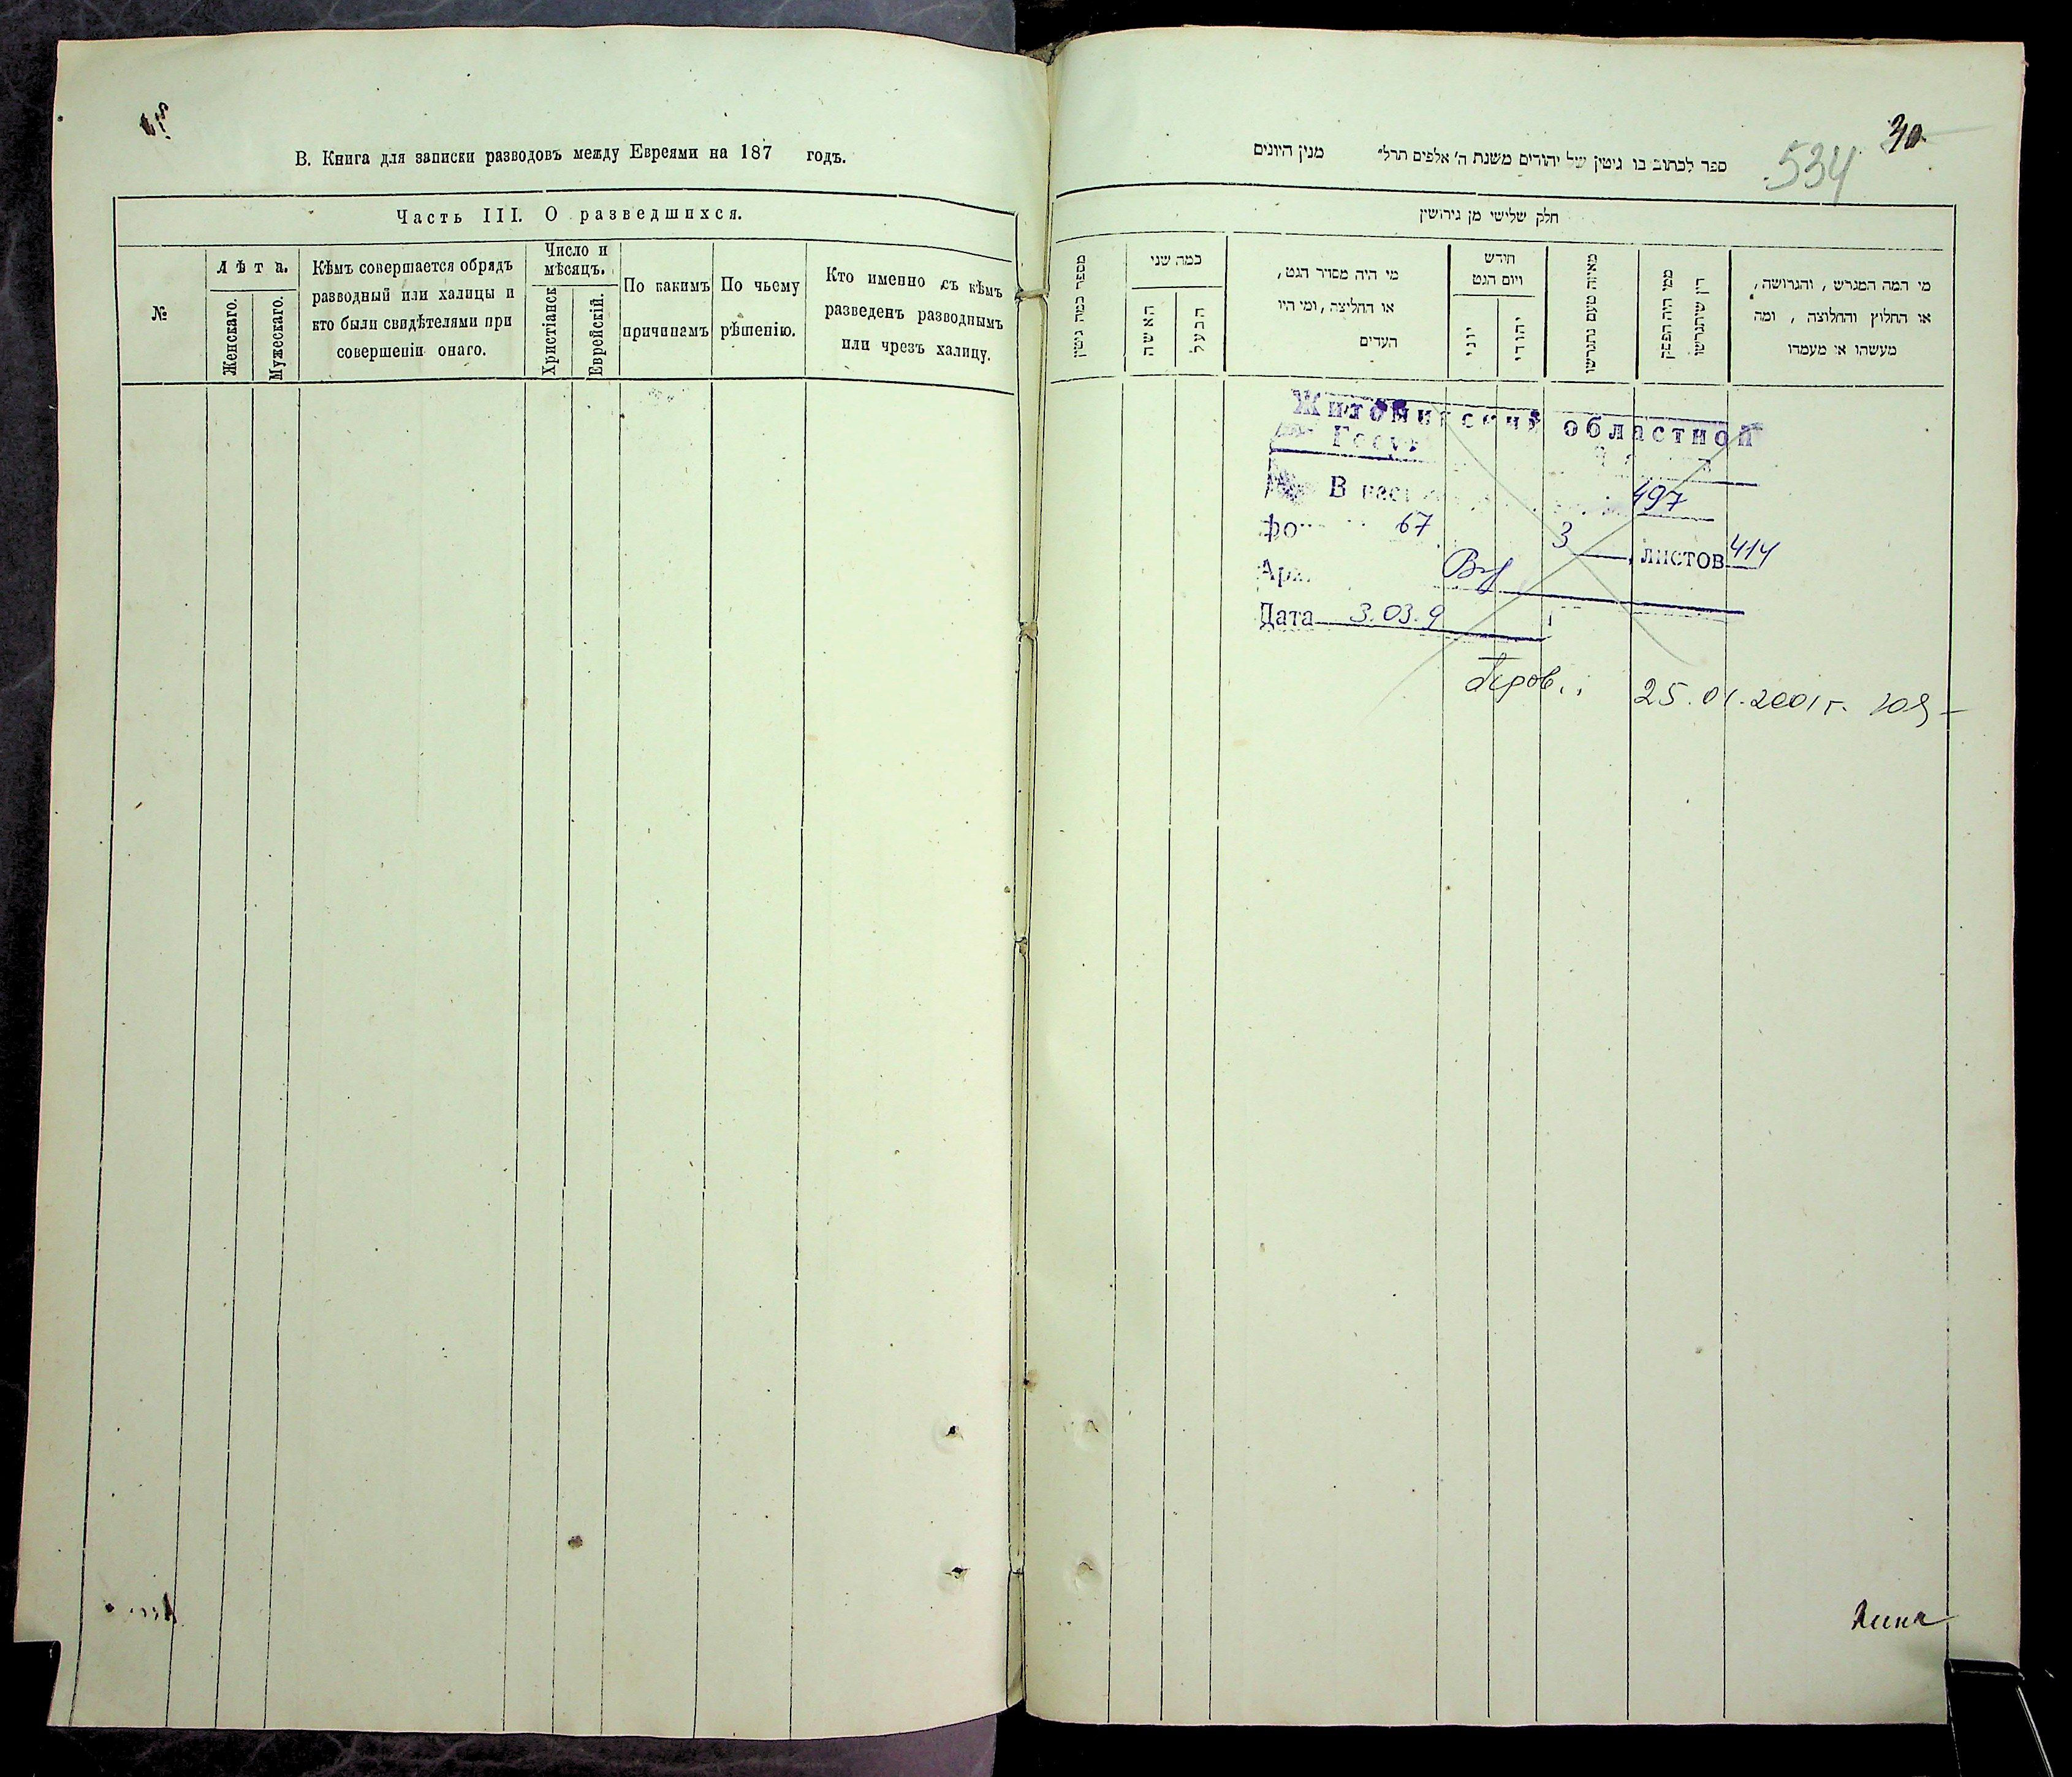 В. Книга для записки разводовъ между Евреями на 187 годъ.
Часть III. О разведшихся.
№
Лѣта.
Женскаго.
Мужескаго.
Кѣмъ совершается обрядъ
разводный или халицы и
кто были свидѣтелями при
совершеніи онаго.
Число и
мѣсяцъ.
Христіанск
Еврейскій.
По какимъ
причинамъ
По чьему
рѣшенію.
Кто именно съ кѣмъ
разведенъ разводнымъ
или чрезъ халицу.
30
534
ספר לכתוב בו גיטין של יהודים משנת ה' אלפים תרל" מנין היונים
חלק שלישי מן גירושין
מספר כמה גיטין
כמה שני
האשה
הבעל
מי היה מסדר הגט,
או החליצה, ומי היו
העדים
חודש
ויום הגט
יוני
יהודי
מאיזה טעם נתגרשו
ממי היה הפסק
דין שיתגרשו
מי המה המגרש, והגרושה,
או החלוץ והחלוצה, ומה
מעשהו או מעמדו
Житомирский областной
Госу
В 497
фо 67 3 листов 414
Ар
Дата 3.03.9
25.01.2001г.